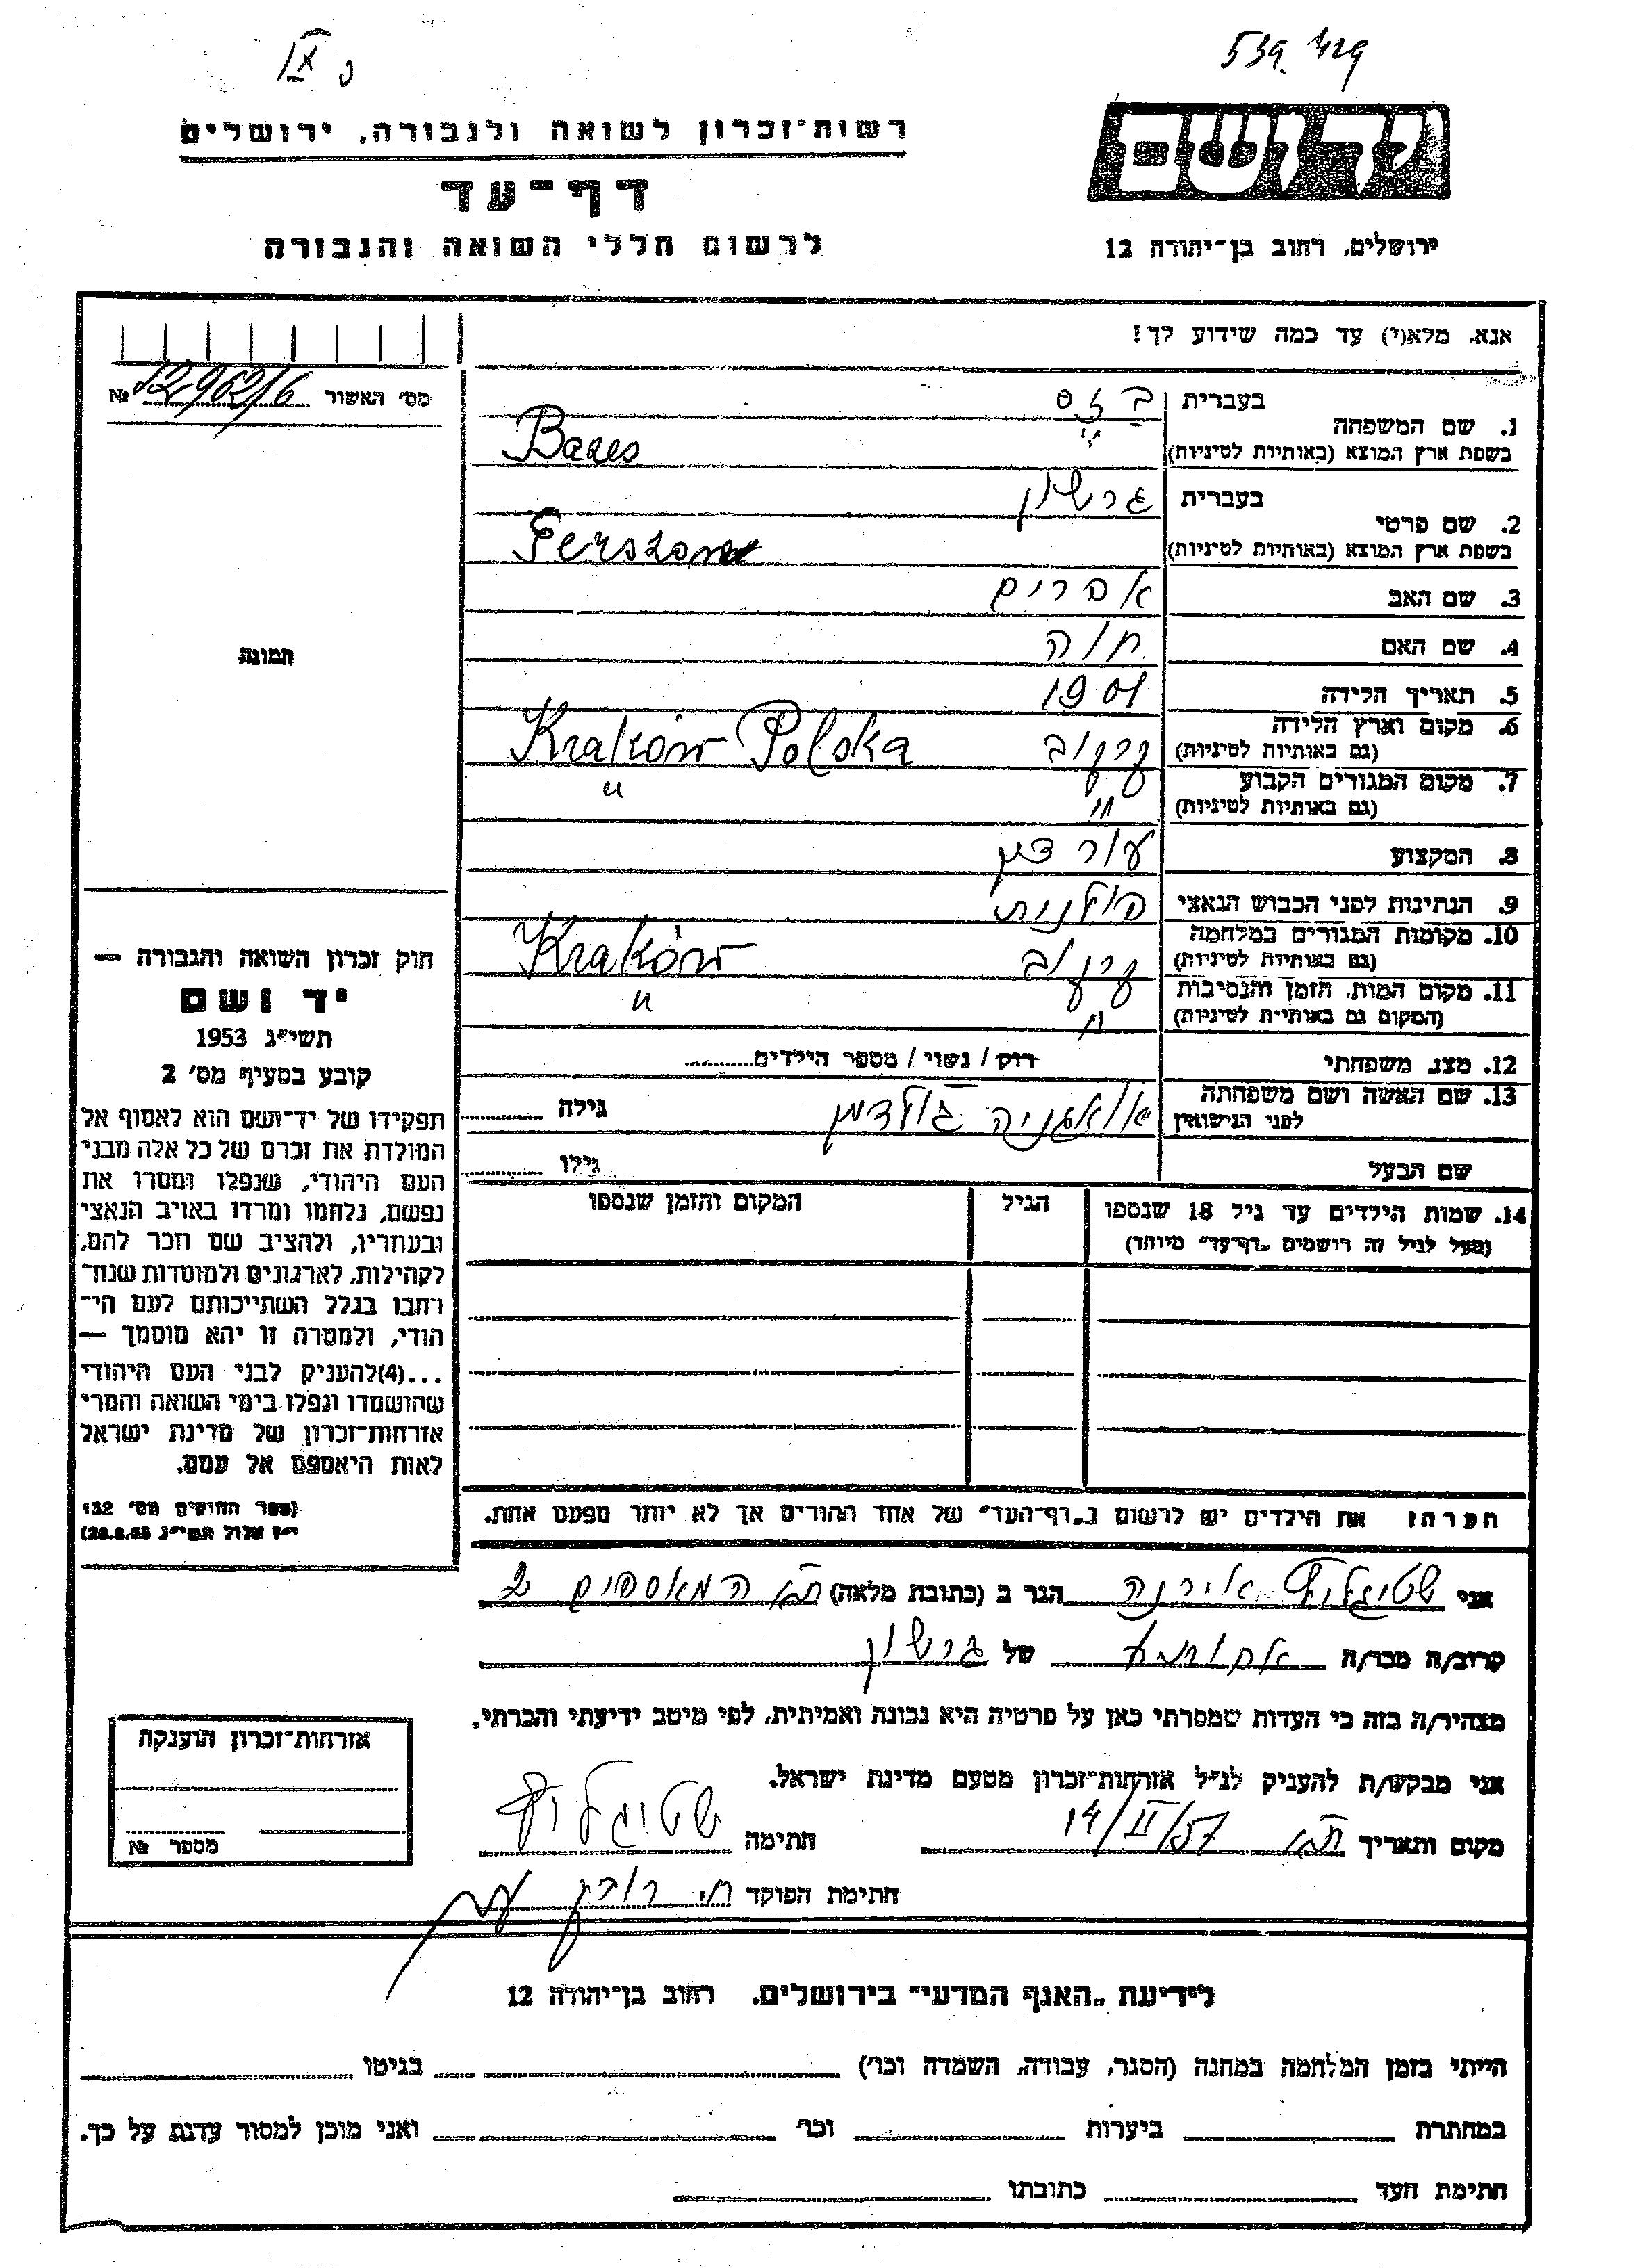 539.429
IX
רשות־זכרון לשואה ולגבורה, ירושלים
יד ושם
דף־עד
לרשום חללי השואה והגבורה
ירושלים, רחוב בן־יהודה 12
אנא, מלא(י) עד כמה שידוע לך!
מס׳ האשור № 12962/6
1. שם המשפחה
בעברית
בזס
בשפת ארץ המוצא (באותיות לטיניות) Bazes
2. שם פרטי
בעברית גרשון
בשפת ארץ המוצא (באותיות לטיניות)
3. שם האב אפרים
4. שם האם חוה
5. תאריך הלידה 1901
6. מקום וארץ הלידה
(גם באותיות לטיניות) קרקוב Kraków Polska
7. מקום המגורים הקבוע
(גם באותיות לטיניות) " "
8. המקצוע עורך דין
9. הנתינות לפני הכבוש הנאצי פולנית
10. מקומות המגורים במלחמה
(גם באותיות לטיניות) קרקוב Kraków
11. מקום המות, הזמן והנסיבות
(המקום גם באותיות לטיניות) " "
12. מצב משפחתי רוק / נשוי / מספר הילדים
13. שם האשה ושם משפחתה
לפני הנישואין גולדמן גילה
שם הבעל גילו
14. שמות הילדים עד גיל 18 שנספו
(מעל לגיל זה רושמים „דף־עד״ מיוחד)
הגיל
המקום והזמן שנספו
הערה: את הילדים יש לרשום ב„דף־העד״ של אחד ההורים אך לא יותר מפעם אחת.
תמונה
חוק זכרון השואה והגבורה —
יד ושם
תשי״ג 1953
קובע בסעיף מס׳ 2
תפקידו של יד־ושם הוא לאסוף אל
המולדת את זכרם של כל אלה מבני
העם היהודי, שנפלו ומסרו את
נפשם, נלחמו ומרדו באויב הנאצי
ובעוזריו, ולהציב שם וזכר להם,
לקהילות, לארגונים ולמוסדות שנח־
רבו בגלל השתייכותם לעם הי־
הודי, ולמטרה זו יהא מוסמך —
...(4)להעניק לבני העם היהודי
שהושמדו ונפלו בימי השואה והמרי
אזרחות־זכרון של מדינת ישראל
לאות היאספם אל עמם.
(ספר החוקים מס׳ 132,
י״ז אלול תשי״ג 28.8.53)
אני שטיגליץ אירנה הגר ב (כתובת מלאה) ת״א המאספים 2
קרוב/ה מכר/ה אחותו של גרשון
מצהיר/ה בזה כי העדות שמסרתי כאן על פרטיה היא נכונה ואמיתית, לפי מיטב ידיעתי והכרתי.
אני מבקש/ת להעניק לנ״ל אזרחות־זכרון מטעם מדינת ישראל.
מקום ותאריך ת״א 14/II/57 חתימה שטיגליץ
חתימת הפוקד
אזרחות־זכרון הוענקה
מספר №
לידיעת „האגף המדעי״ בירושלים. רחוב בן־יהודה 12
הייתי בזמן המלחמה במחנה (הסגר, עבודה, השמדה וכו׳) בגיטו
במחתרת ביערות וכו׳ ואני מוכן למסור עדות על כך.
חתימת העד כתובתו